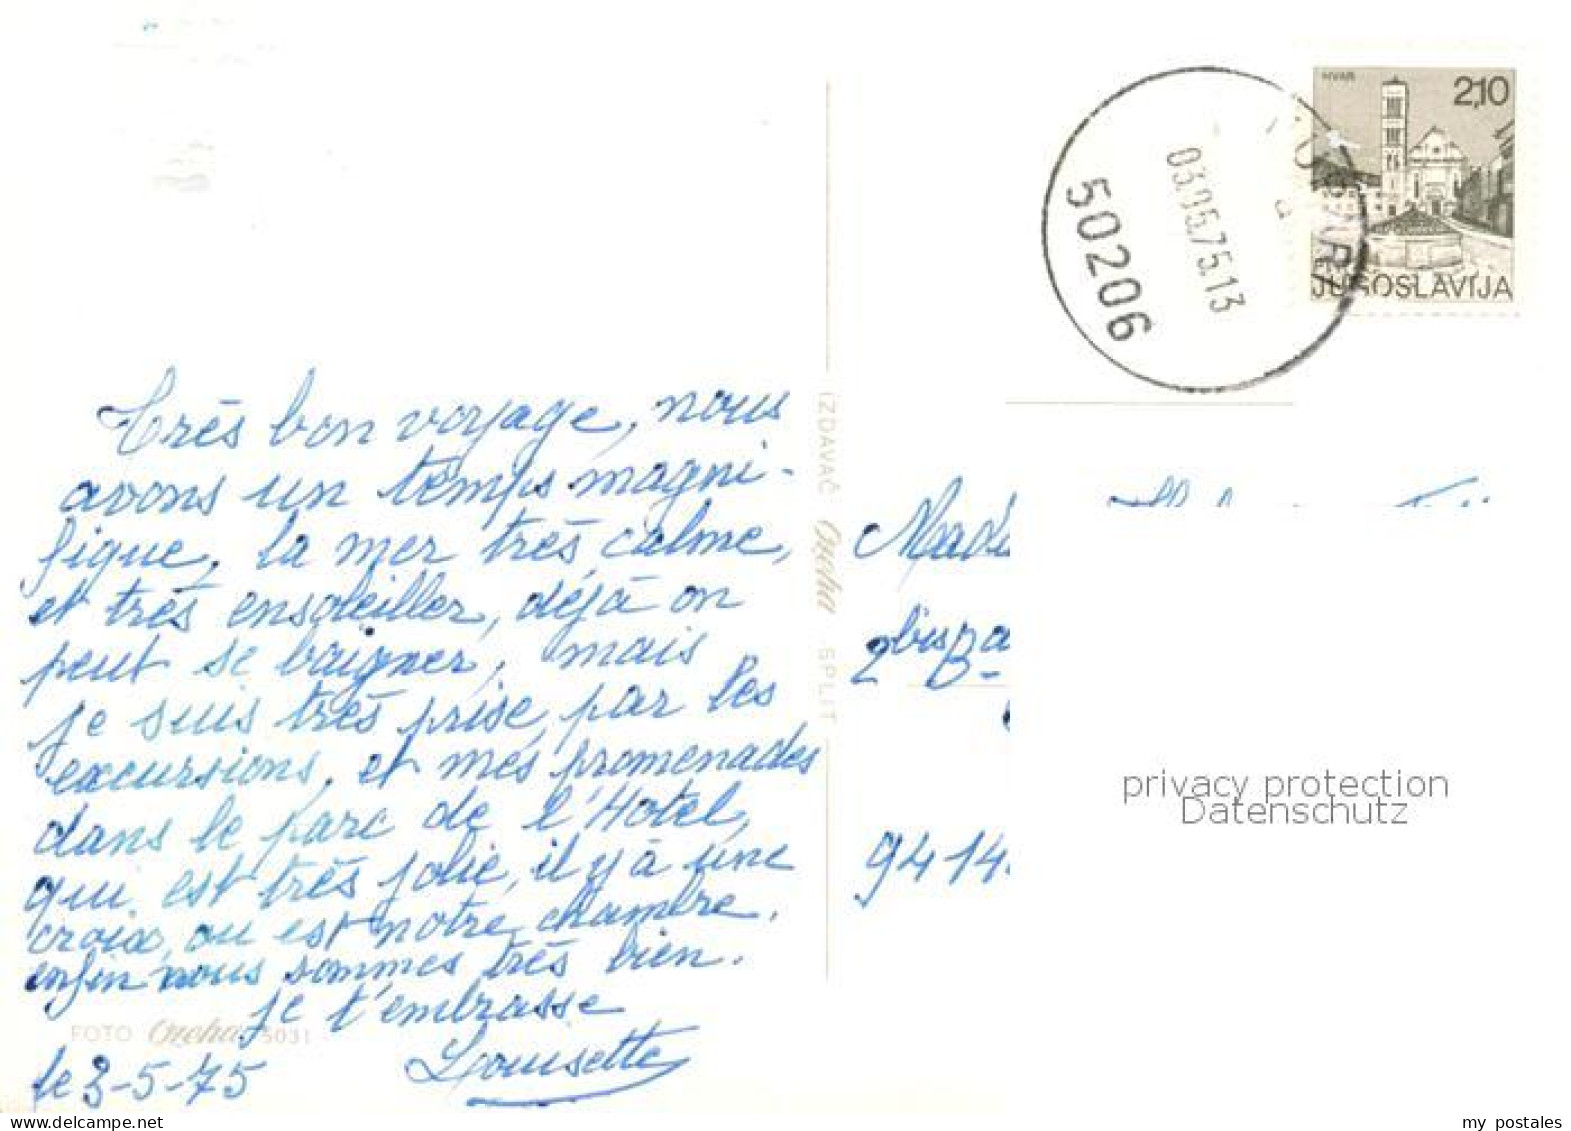 HVAR
2,10
JUGOSLAVIJA
03.05.75.13
50206
Très bon voyage, nous
avons un temps magni-
fique, la mer très calme,
et très ensoleiller, déjà on
peut se baigner, mais
je suis très prise, par les
excursions, et mes promenades
dans le parc de l'Hotel,
qui est très jolie, il y à une
croix, ou est notre chambre.
enfin nous sommes très bien.
je t'embrasse
Louisette
le 3-5-75
FOTO 5031
IZDAVAČ SPLIT
2 bis
94 14
privacy protection
Datenschutz
my_postales